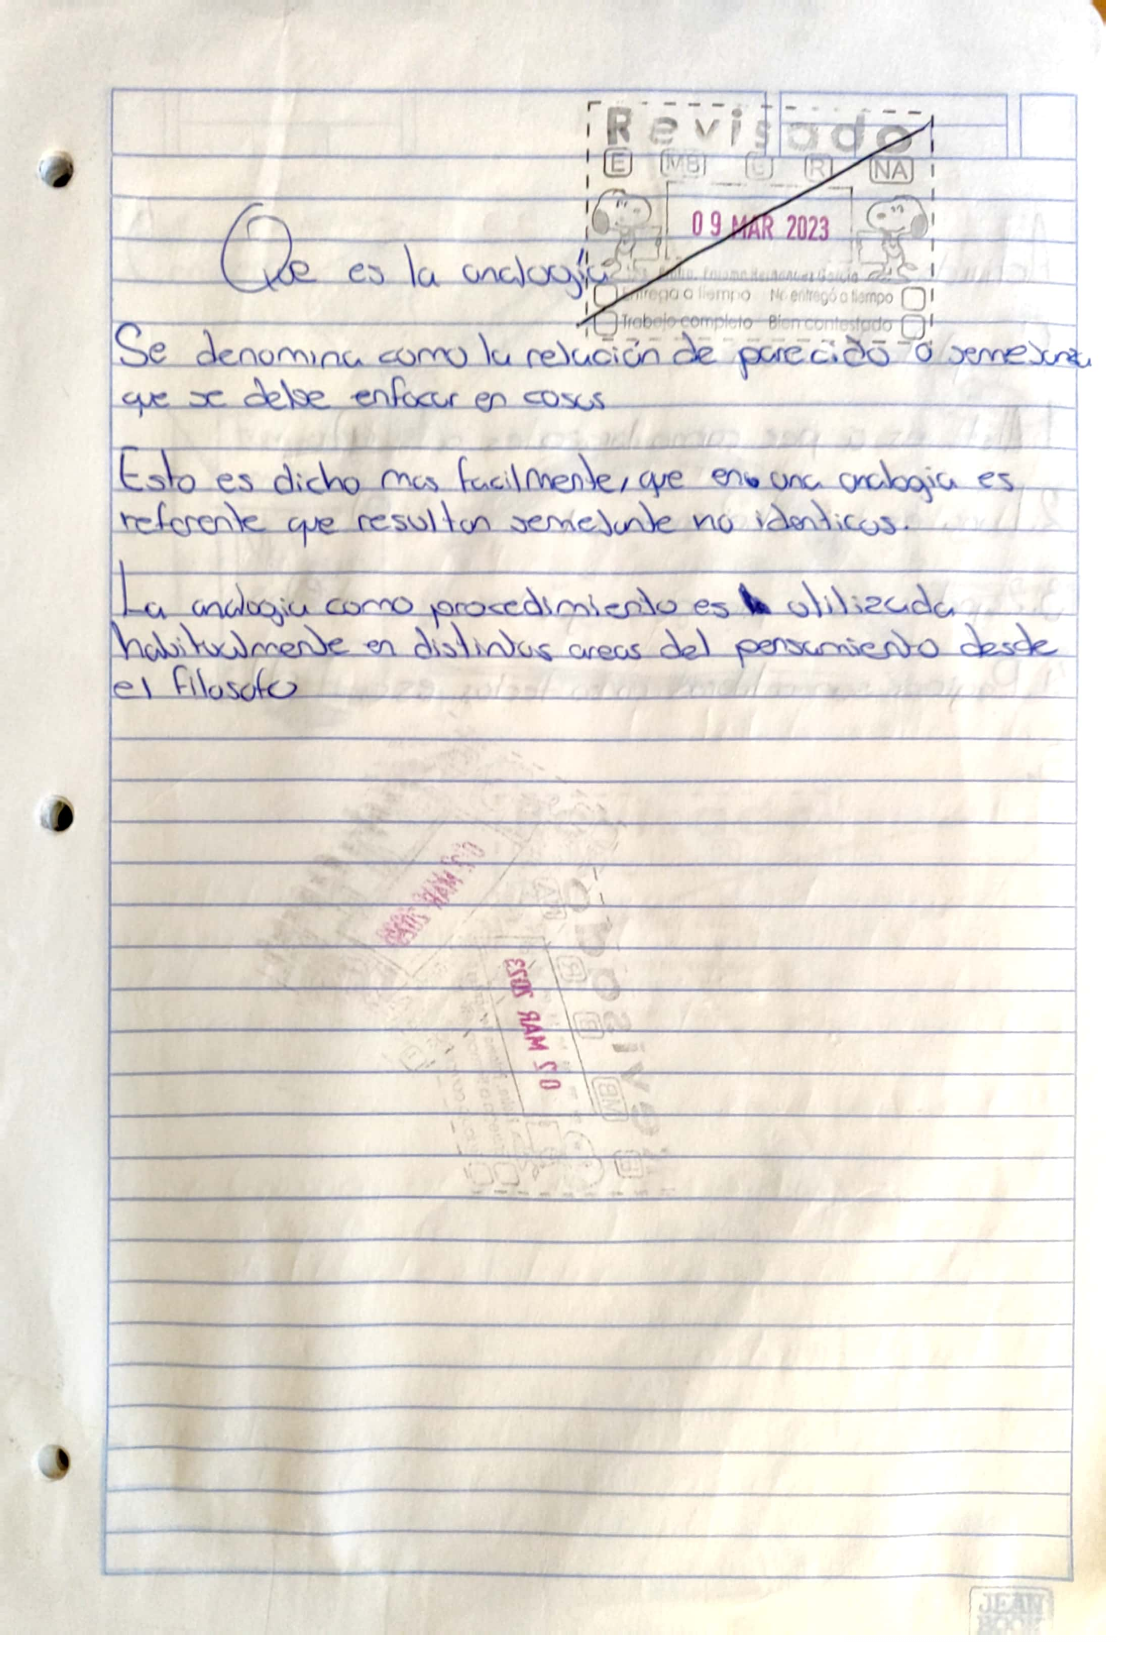 Revisado
E MB B R NA
09 MAR 2023
Que es la analogía
Entrega a tiempo No entregó a tiempo
Trabajo completo Bien contestado
Se denomina como la relación de parecido o semejanza
que se debe enfocar en cosas
Esto es dicho mas facilmente, que en una analogia es
referente que resultan semejante no identicas.
La analogia como procedimiento es utilizada
habitualmente en distintas areas del pensamiento desde
el filosofo
02 MAR 2023
JEAN
BOOK